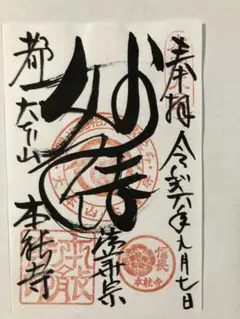 奉拝 令和六年九月七日
信長
本能寺
妙法
法華宗
都
大本山
本能寺